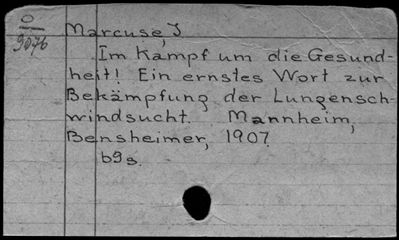 O
9076
Marcuse, J
Im Kampf um die Gesund-
heit! Ein ernstes Wort zur
Bekämpfung der Lungensch-
windsucht. Mannheim,
Bensheimer, 1907.
69s.